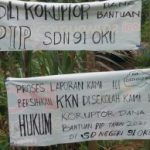 KORUPTOR DANA
BANTUAN
PIP SDN 91 OKU
PROSES LAPORAN KAMI
BERSIHKAN KKN DI SEKOLAH KAMI
HUKUM KORUPTOR DANA
BANTUAN PIP TAHUN 2020
DI SD NEGERI 91 OKU